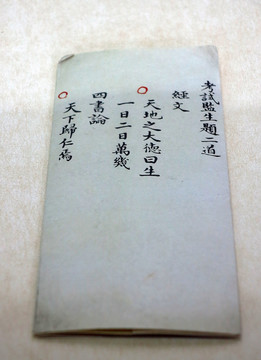 考試監生題二道
經文
天地之大德曰生
一日二日萬幾
四書論
天下歸仁焉